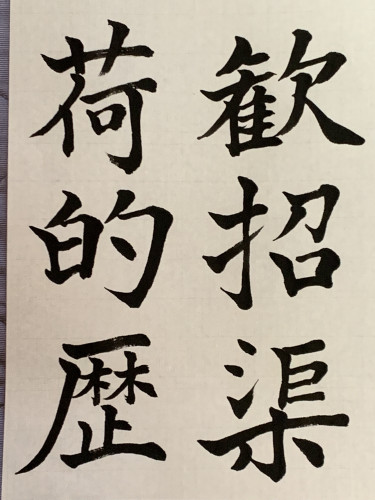 歓招渠
荷的歴